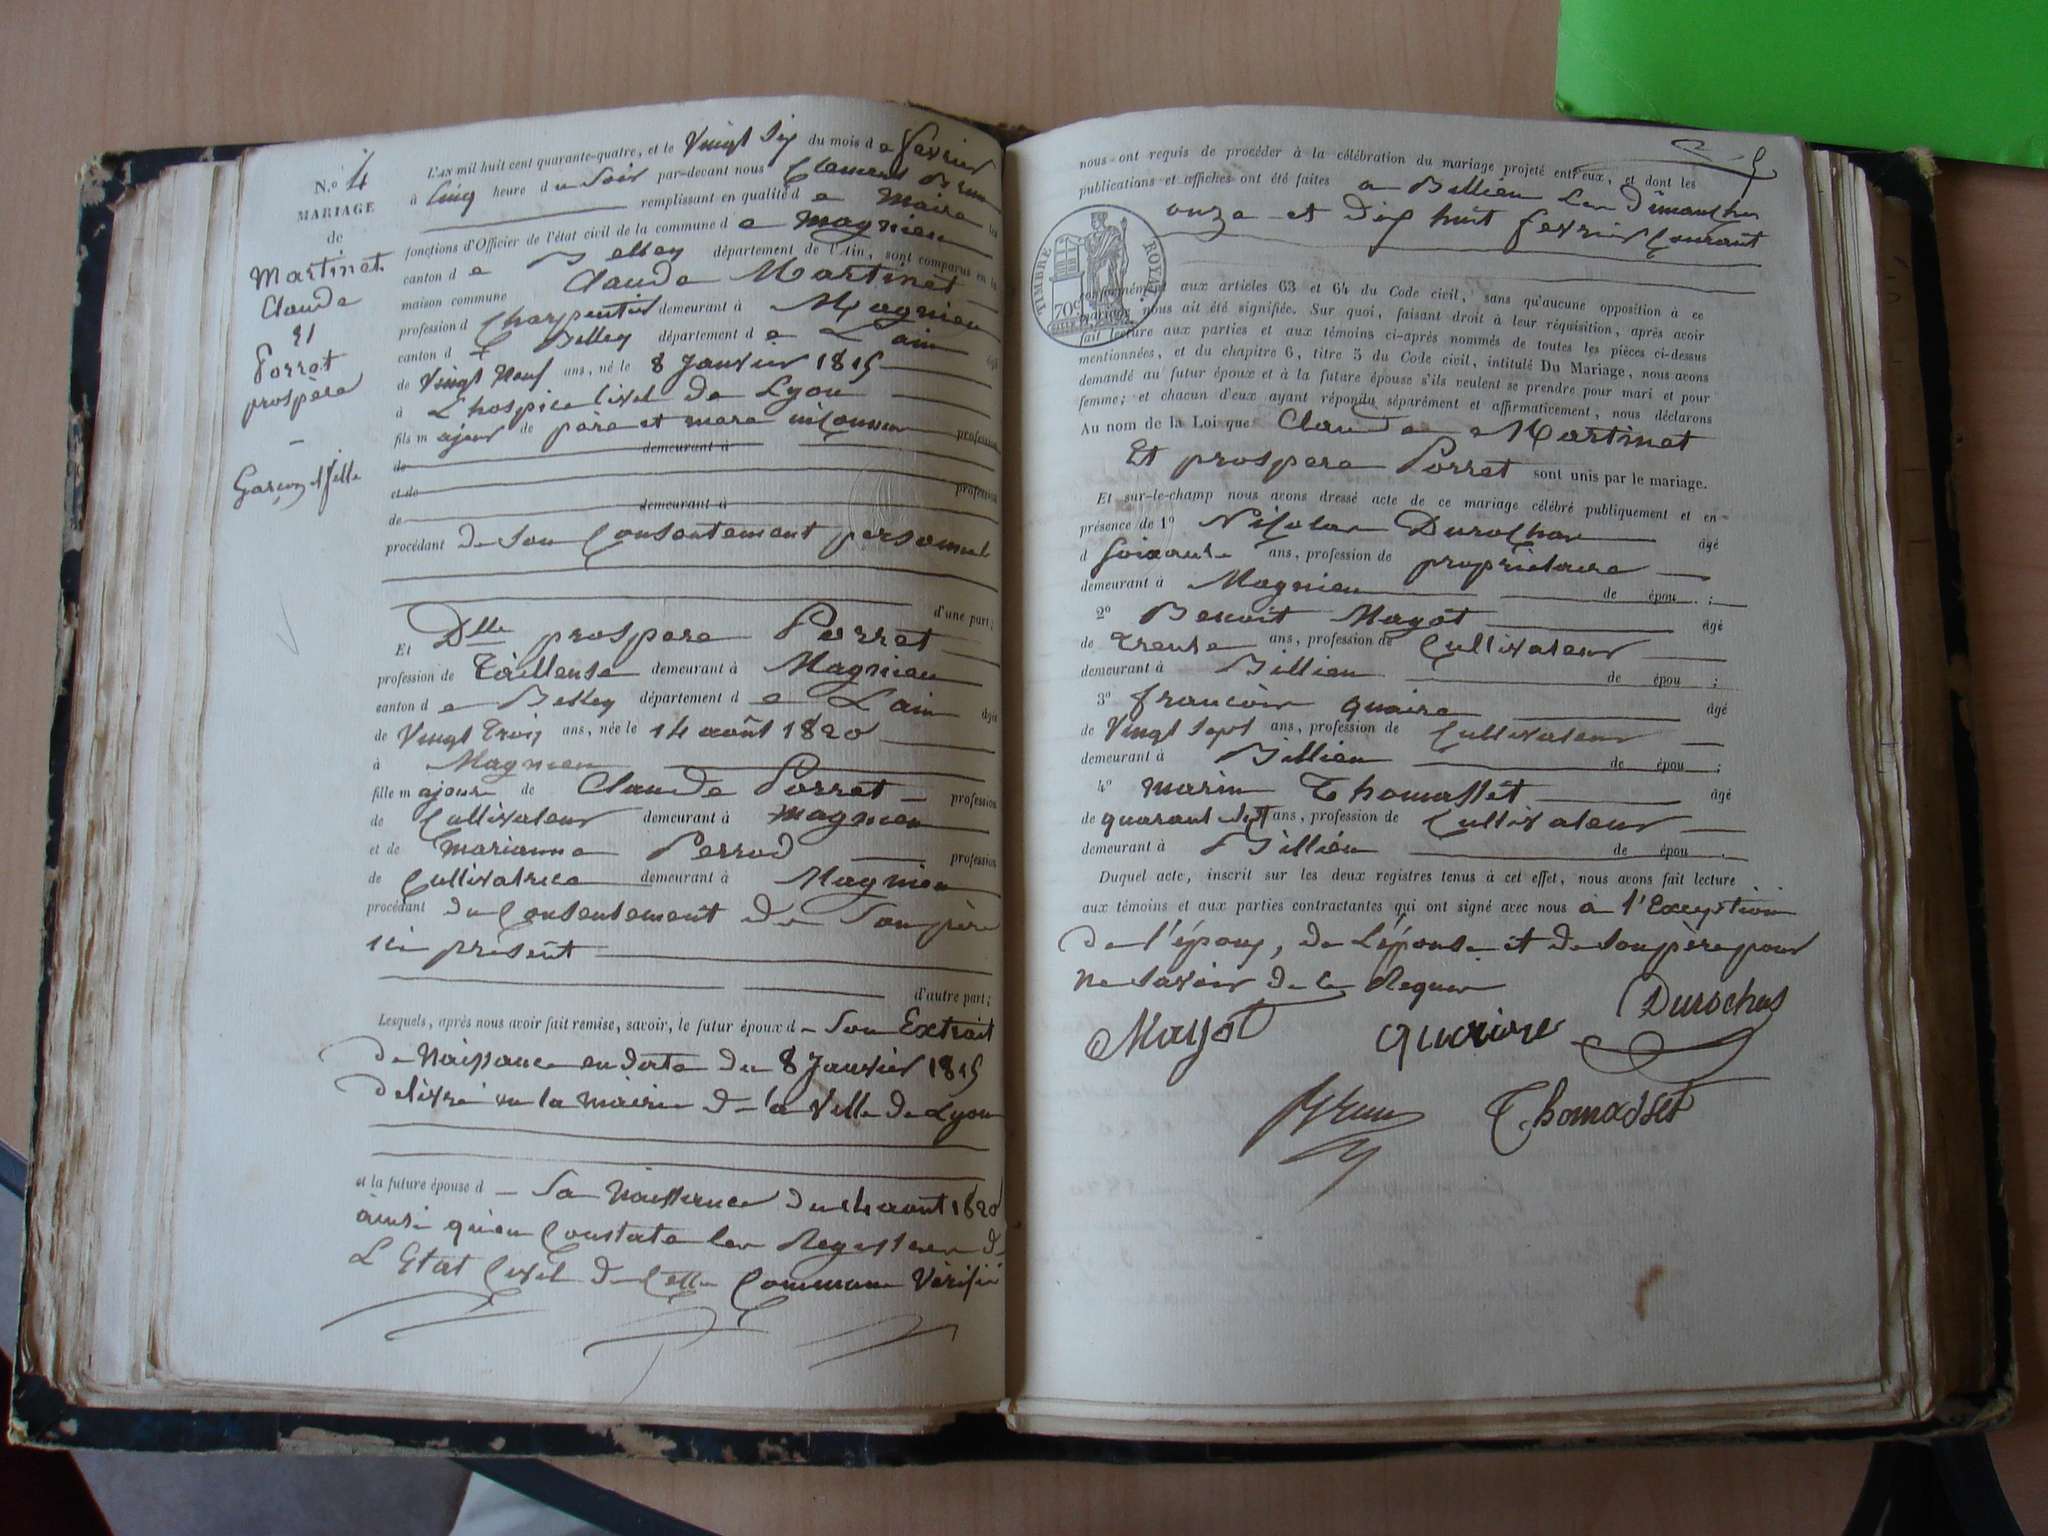 N.o 4
MARIAGE
de
Martinet
Claude
et
Porret
prospère
Garçon et fille
L'AN mil huit cent quarante-quatre, et le Vingt Six du mois de fevrier
à Cinq heure du Soir par-devant nous Clement Brun
remplissant en qualité de Maire les
fonctions d'Officier de l'état civil de la commune de Magnieu
canton de Belley département de l'Ain, sont comparus en la
maison commune Claude Martinet
profession d Charpentier demeurant à Magnieu
canton d Belley département de L'ain âgé
de Vingt Neuf ans, né le 8 Janvier 1815
à L'hospice Civil de Lyon
fils majeur de père et mere inconnus profession
de demeurant à
et de profession
de demeurant à
procédant de Son Consentement personnel
d'une part;
Et Dlle prospere Porret
profession de Tailleuse demeurant à Magnieu
canton de Belley département de L'ain âgée
de Vingt Trois ans, née le 14 août 1820
à Magnieu
fille majeure de Claude Porret profession
de Cultivateur demeurant à Magnieu
et de Marianne Perrod profession
de Cultivatrice demeurant à Magnieu
procédant du Consentement de Son père
ici présent
d'autre part;
Lesquels, après nous avoir fait remise, savoir, le futur époux d Son Extrait
de Naissance en date du 8 Janvier 1815
délivré en la mairie de la Ville de Lyon
et la future épouse d Sa Naissance du 14 août 1820
ainsi qu'en Constate les Registres de
L'Etat Civil de Cette Commune Vérifié
5
nous ont requis de procéder à la célébration du mariage projeté entr'eux, et dont les
publications et affiches ont été faites a Billieu Les Dimanches
onze et dix huit fevrier Courant
TIMBRE ROYAL
70c
conformément aux articles 63 et 64 du Code civil, sans qu'aucune opposition à ce
mariage nous ait été signifiée. Sur quoi, faisant droit à leur réquisition, après avoir
fait lecture aux parties et aux témoins ci-après nommés de toutes les pièces ci-dessus
mentionnées, et du chapitre 6, titre 5 du Code civil, intitulé Du Mariage, nous avons
demandé au futur époux et à la future épouse s'ils veulent se prendre pour mari et pour
femme; et chacun d'eux ayant répondu séparément et affirmativement, nous déclarons
Au nom de la Loi que Claude Martinet
Et prospere Porret sont unis par le mariage.
Et sur-le-champ nous avons dressé acte de ce mariage célébré publiquement et en
présence de 1o Nicolas Durochas âgé
d Soixante ans, profession de propriétaire
demeurant à Magnieu de épou ;
2o Benoit Mayot âgé
de Trente ans, profession de Cultivateur
demeurant à Billieu de épou ;
3o francois quaire âgé
de Vingt Sept ans, profession de Cultivateur
demeurant à Billieu de épou ;
4o marin Thomasset âgé
de quarant sept ans, profession de Cultivateur
demeurant à Billieu de épou .
Duquel acte, inscrit sur les deux registres tenus à cet effet, nous avons fait lecture
aux témoins et aux parties contractantes qui ont signé avec nous à l'Exception
de l'époux, de L'épouse et de Son père pour
ne Savoir de ce Requis
Mayot quaire Durochas
Brun Thomasset